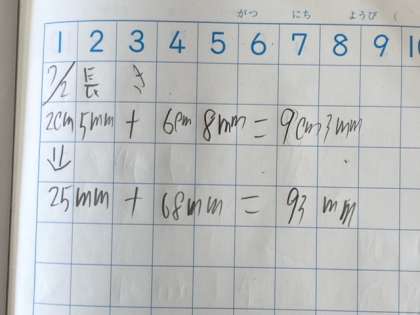 がつ にち ようび (
1 2 3 4 5 6 7 8 9 10
7/2
2cm 5mm + 6cm 8mm = 9cm 3mm
⇓
25mm + 68mm = 93 mm